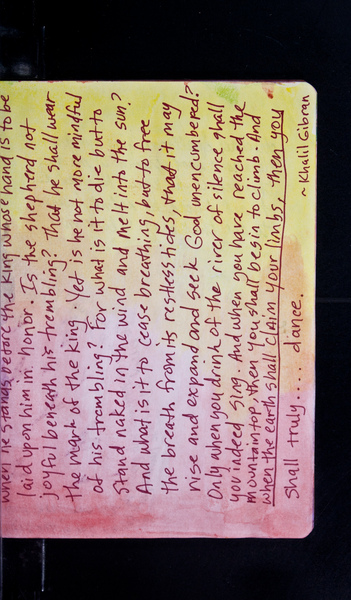 when he stands before the King whose hand is to be
laid upon him in honor. Is the shepherd not
joyful beneath his trembling? That he shall wear
the mark of the king. Yet is he not more mindful
of his trembling? For what is it to die but to
Stand naked in the wind and melt into the sun?
And what is it to cease breathing, but to free
the breath from its restless tides, that it may
rise and expand and seek God unencumbered?
Only when you drink of the river of silence shall
you indeed sing. And when you have reached the
mountaintop, then you shall begin to climb. And
when the earth shall claim your limbs, then you
Shall truly.... dance.
~Khalil Gibran